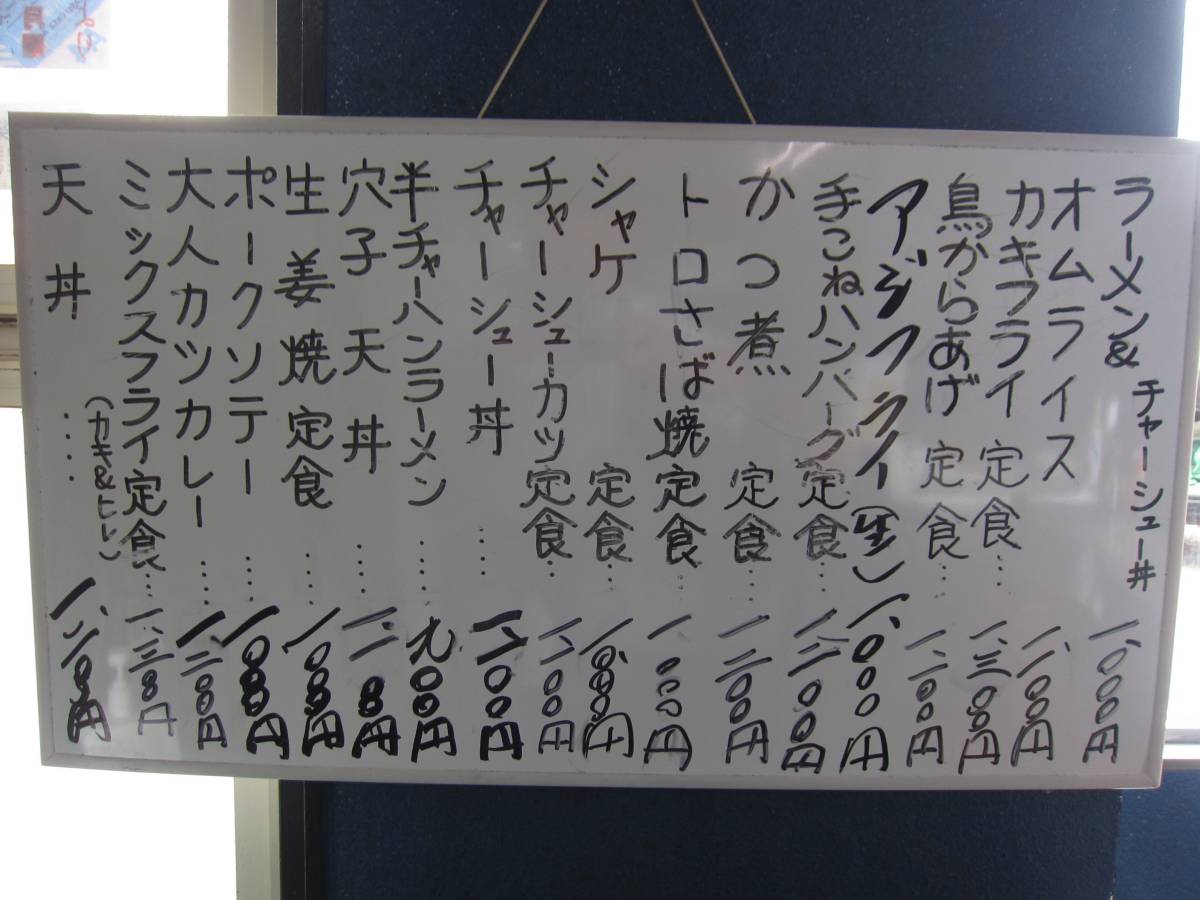 ラーメン&チャーシュー丼 一、000円
オムライス 一、一00円
カキフライ定食… 一、三00円
鳥からあげ定食… 一、二00円
アジフライ(生) 一、000円
手こねハンバーグ定食… 一、二00円
かつ煮 定食… 一二00円
トロさば焼定食… 一000円
シャケ 定食… 一、000円
チャーシューカツ定食… 一、一00円
チャーシュー丼…… 一、一00円
半チャーハンラーメン…… 九00円
穴子天丼…… 一、一00円
生姜焼定食…… 一、000円
ポークソテー…… 一、000円
大人カツカレー…… 一、二00円
ミックスフライ定食… 一、三00円
(カキ&ヒレ)
天丼…… 一、二00円